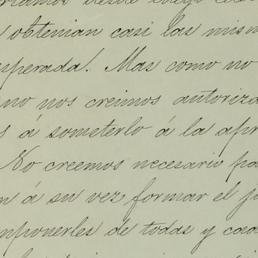 desde luego
obtenian casi las mism
perada. Mas como no
no nos creimos autoriza
s á someterlo á la apr
No creemos necesario pa
n á su vez formar el j
mponerles de todas y cad